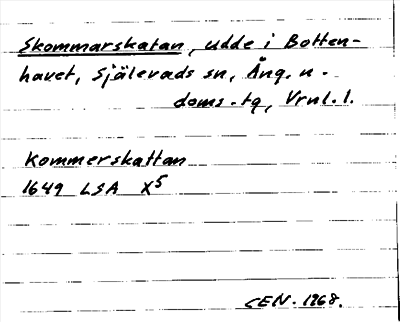 Skommarskatan, udde i Botten-
havet, Själevads sn, Ång. n.
doms.tg, Vrnl.l.
Kommerskattan
1649 LSA X5
CEN. 1968.